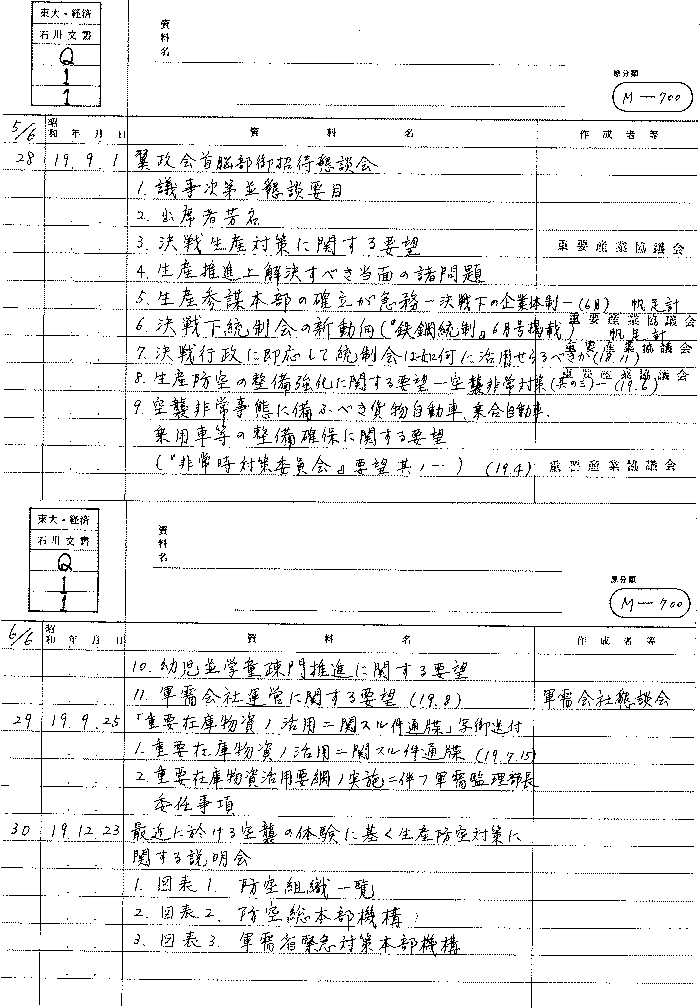 東大・経済
石川文書
Q
1
1
資料名
原分類
M-700
5/6
昭和 年 月 日
資 料 名
作成者等
28 19.9.1 翼政会首脳部御招待懇談会
1. 議事次第並懇談要目
2. 出席者芳名
3. 決戦生産対策に関する要望 重要産業協議会
4. 生産推進上解決すべき当面の諸問題
5. 生産参謀本部の確立が急務-決戦下の企業体制-(6月) 帆足計
6. 決戦下統制会の新動向(『鉄鋼統制』6月号掲載) 重要産業協議会 帆足計
7. 決戦行政に即応して統制会は如何に活用せらるべきか 重要産業協議会
8. 生産防空の整備強化に関する要望-空襲非常対策(其の三)-(19.6) 重要産業協議会
9. 空襲非常事態に備ふべき貨物自動車、乗合自動車、
乗用車等の整備確保に関する要望
(『非常時対策委員会』要望其ノ一) (19.4) 重要産業協議会
東大・経済
石川文書
Q
1
1
資料名
原分類
M-700
6/6
昭和 年 月 日
資 料 名
作成者等
10. 幼児並学童疎開推進に関する要望
11. 軍需会社運営に関する要望 (19.8) 軍需会社懇談会
29 19.9.25 「重要在庫物資ノ活用ニ関スル件通牒」写御送付
1. 重要在庫物資ノ活用ニ関スル件通牒 (19.7.15)
2. 重要在庫物資活用要綱ノ実施ニ伴フ軍需監理部長
委任事項
30 19.12.23 最近に於ける空襲の体験に基く生産防空対策に
関する説明会
1. 図表1. 防空組織一覧
2. 図表2. 防空総本部機構
3. 図表3. 軍需省緊急対策本部機構